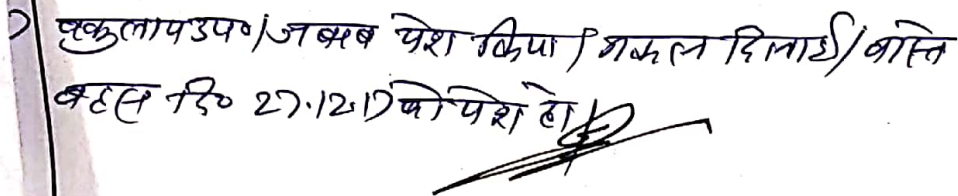 वकुलाय उप०/जबाब पेश किया/नकल दिलाई/वास्ते
बहस दि० 27.12.17 को पेश हो